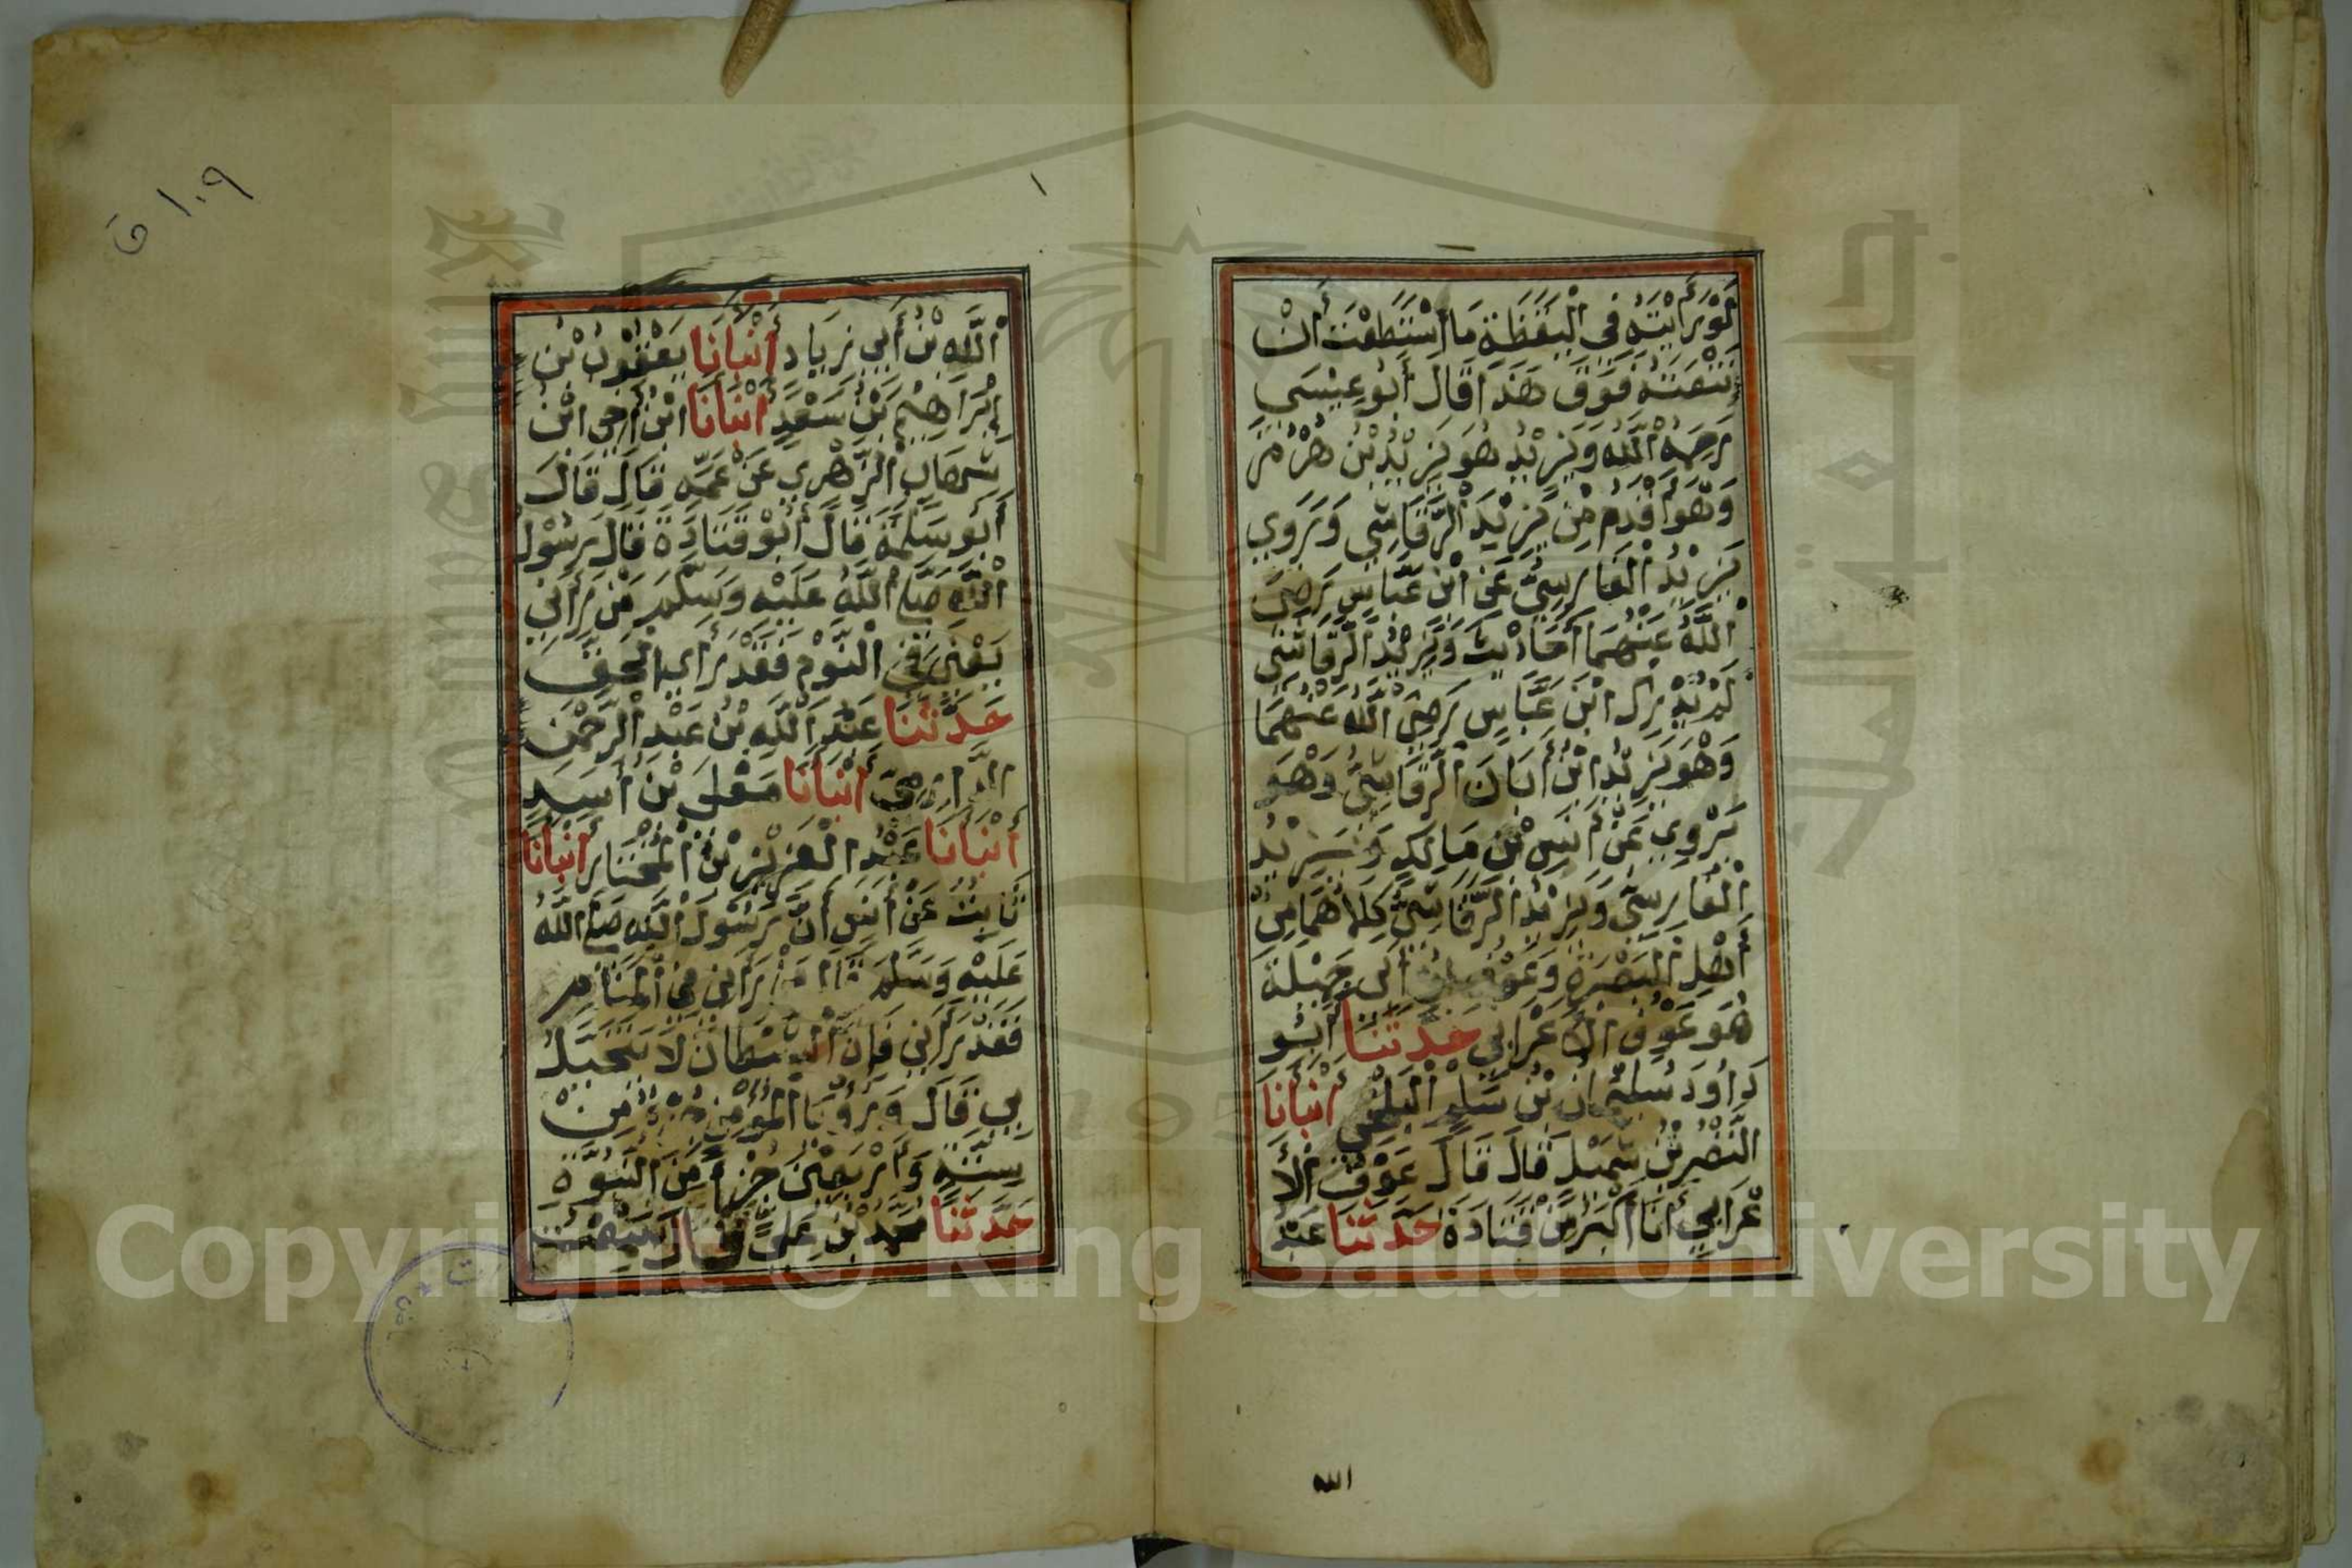 لَوْ رَأَيْتَهُ فِي الْيَقَظَةِ مَا اسْتَطَعْتَ أَنْ
تَنْعَتَهُ فَوْقَ هَذَا قَالَ أَبُو عِيْسَي
رَحِمَهُ اللَّهُ وَيَزِيْدُ هُوَ يَزِيْدُ بْنُ هُرْمُزَ
وَهُوَ أَقْدَمُ مِنْ يَزِيْدَ الرَّقَاشِي وَرَوَي
يَزِيْدُ الْفَارِسِيُّ عَنِ ابْنِ عَبَّاسٍ رَضِيَ
اللَّهُ عَنْهُمَا أَحَادِيْثَ وَيَزِيْدُ الرَّقَاشِي
لَمْ يُدْرِكْ ابْنَ عَبَّاسٍ رَضِيَ اللَّهُ عَنْهُمَا
وَهُوَ يَزِيْدُ ابْنُ أَبَانَ الرَّقَاشِيُّ وَهُوَ
يَرْوِي عَنْ أَنَسِ بْنِ مَالِكٍ وَيَزِيْدُ
الْفَارِسِيُّ وَيَزِيْدُ الرَّقَاشِيُّ كِلَاهُمَا مِنْ
أَهْلِ الْبَصْرَةِ وَعَوْفُ بْنُ أَبِي جَمِيْلَةَ
هُوَ عَوْفُ الْأَعْرَابِي حَدَّثَنَا أَبُو
دَاوُدَ سُلَيْمَانُ بْنُ سَلْمٍ الْبَلْخِي أَنْبَأَنَا
النَّضْرُ بْنُ شُمَيْلٍ قَالَ قَالَ عَوْفٌ الْأَ
عْرَابِي أَنَا أَكْبَرُ مِنْ قَتَادَةَ حَدَّثَنَا عَبْدُ
الله
١٠٩ ق
١
اللَّهِ بْنُ أَبِي زِيَادٍ أَنْبَأَنَا يَعْقُوْبُ بْنُ
إِبْرَاهِيْمَ بْنِ سَعْدٍ أَنْبَأَنَا ابْنُ أَخِي ابْنِ
شِهَابِ الزُّهْرِي عَنْ عَمِّهِ قَالَ قَالَ
أَبُو سَلَمَةَ قَالَ أَبُوْ قَتَادَةَ قَالَ رَسُوْلُ
اللَّهِ صَلَّى اللَّهُ عَلَيْهِ وَسَلَّمَ مَنْ رَأَنِي
يَعْنِي فِي النَّوْمِ فَقَدْ رَأَي الْحَقَّ
حَدَّثَنَا عَبْدُ اللَّهِ بْنُ عَبْدِ الرَّحْمَنِ
الدَّارِمِيُّ أَنْبَأَنَا مُعَلَّى بْنُ أَسَدٍ
أَنْبَأَنَا عَبْدُ الْعَزِيْزِ بْنُ الْمُخْتَارِ أَنْبَأَنَا
ثَابِتٌ عَنْ أَنَسٍ أَنَّ رَسُوْلَ اللَّهِ صَلَّى اللَّهُ
عَلَيْهِ وَسَلَّمَ قَالَ مَنْ رَأَنِي فِي الْمَنَامِ
فَقَدْ رَأَنِي فَإِنَّ الشَّيْطَانَ لَا يَتَخَيَّلُ
بِي قَالَ وَرُؤْيَا الْمُؤْمِنِ جُزْءٌ مِنْ
سِتَّةٍ وَأَرْبَعِيْنَ جُزْأً مِنَ النُّبُوَّةِ
حَدَّثَنَا مُحَمَّدُ بْنُ عَلِيٍّ قَالَ سَمِعْتُ
Copyright © King Saud University